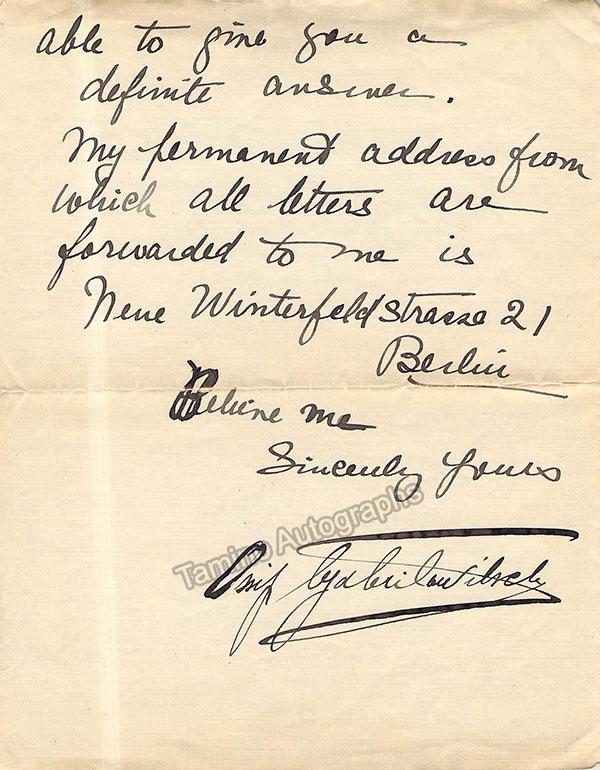 able to give you a
definite answer.
My permanent address from
which all letters are
forwarded to me is
Neue Winterfeldstrasse 21
Berlin
Believe me
Sincerely yours
Tamino Autographs
Ossip Gabrilowitsch